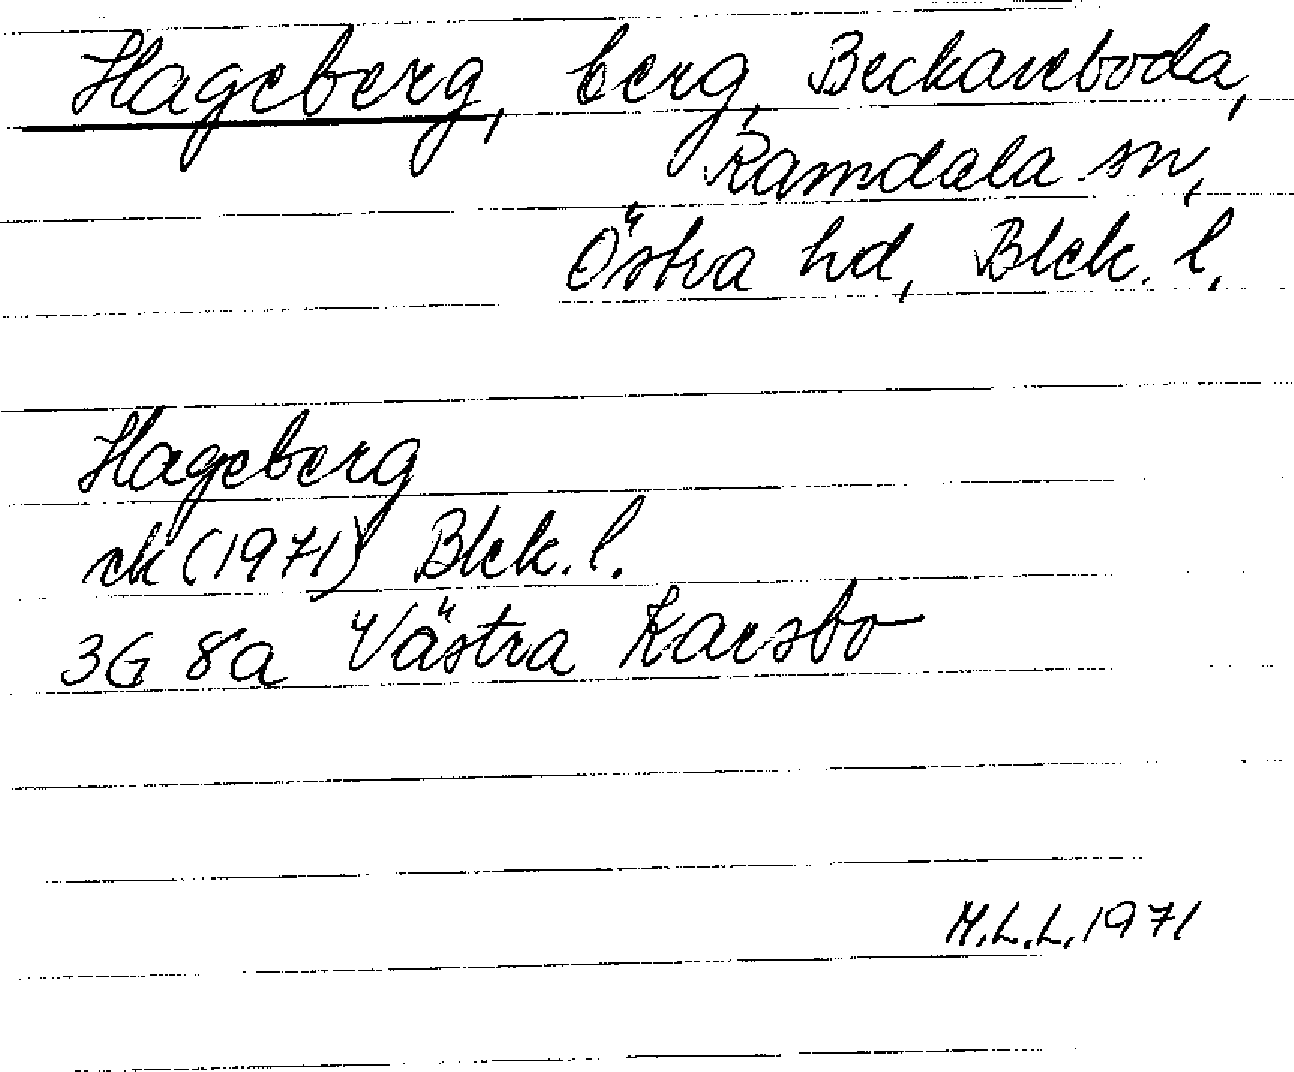 Hageberg, berg, Beckareboda,
Ramdala sn,
Östra hd, Blek. l.
Hageberg
ek (1971) Blek. l.
3G 8a Västra Karsbo
M.L.L. 1971